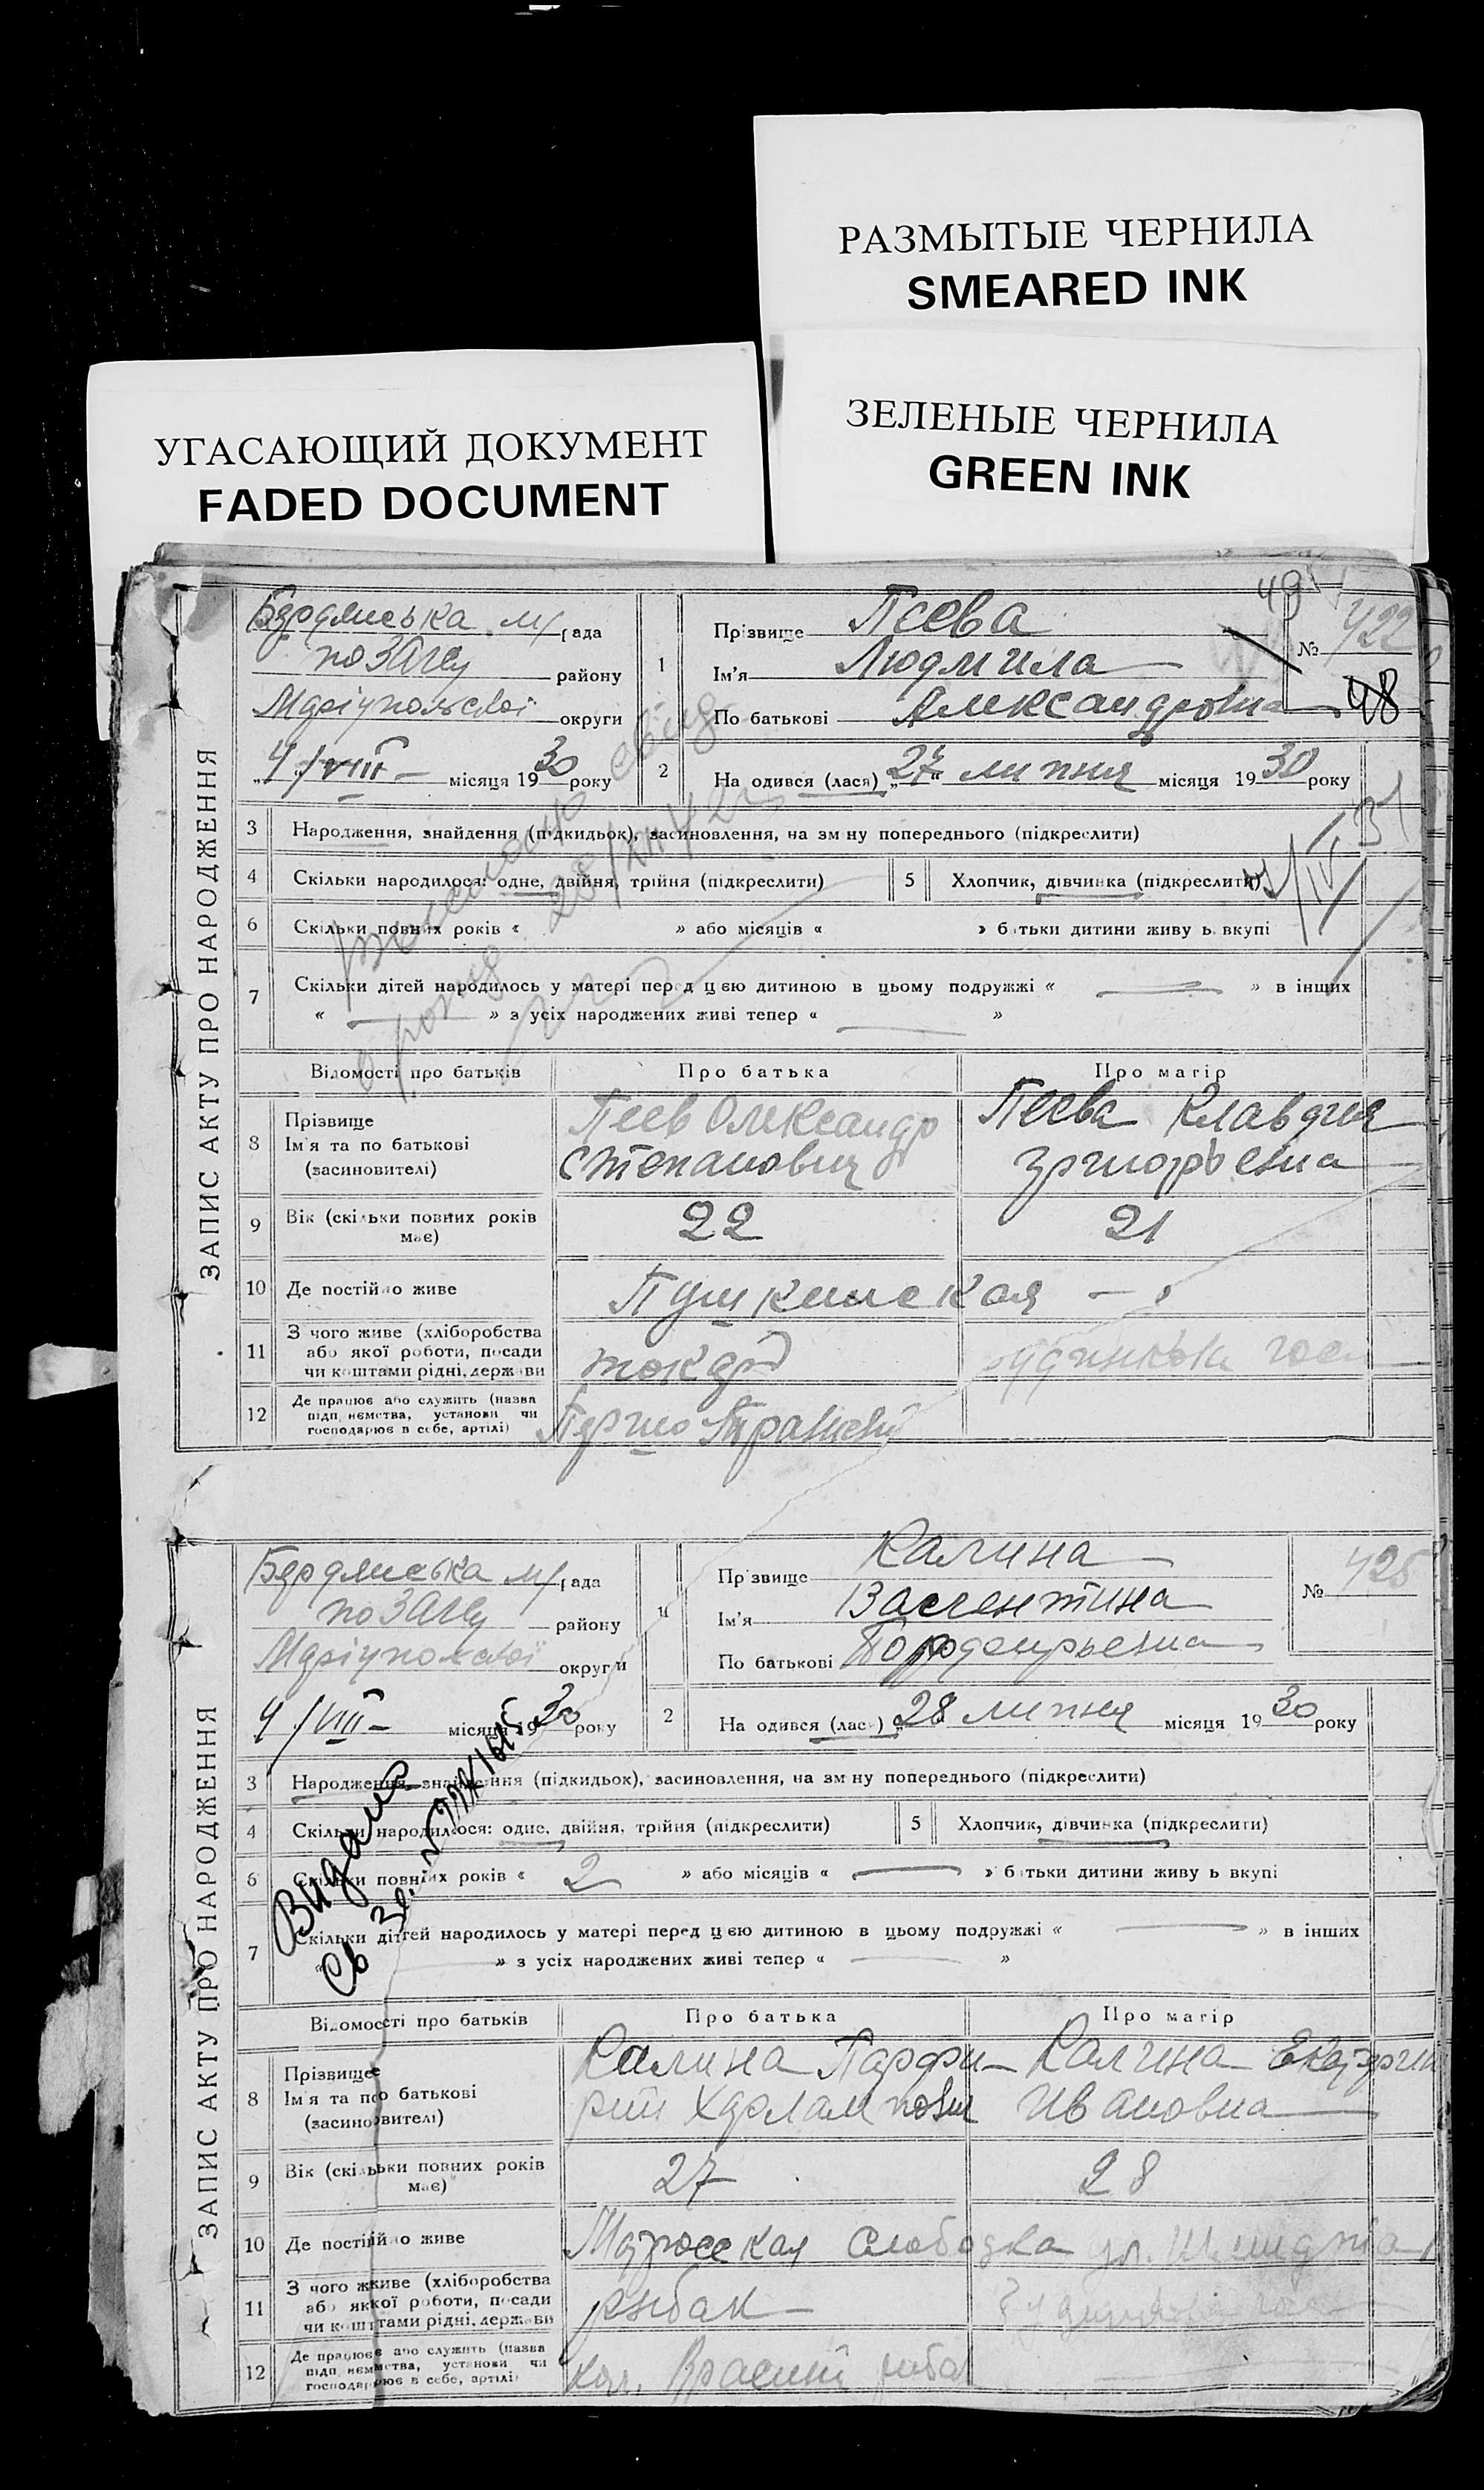 РАЗМЫТЫЕ ЧЕРНИЛА
SMEARED INK
ЗЕЛЕНЫЕ ЧЕРНИЛА
GREEN INK
УГАСАЮЩИЙ ДОКУМЕНТ
FADED DOCUMENT
ЗАПИС АКТУ ПРО НАРОДЖЕННЯ
49
Бердянська м/рада
по ЗАГСу району
Маріупольської округи
4/VIII - місяця 1930 року
1
Прізвище Псева
Ім'я Людмила
По батькові Александровна
№ 422
48
2
На одився (лася) „27" липня місяця 1930 року
3 Народження, знайдення (підкидьок), засиновлення, на зм ну попереднього (підкреслити)
4 Скільки народилося: одне, двійня, трійня (підкреслити)
5 Хлопчик, дівчинка (підкреслити)
6 Скільки повних років « » або місяців « » батьки дитини живу ь вкупі
7 Скільки дітей народилось у матері перед цією дитиною в цьому подружжі « — » в інших
« — » з усіх народжених живі тепер « — »
Відомості про батьків Про батька Про матір
8 Прізвище
Ім'я та по батькові
(засиновителі)
Псев Олександр
Степанович
Псева Клавдия
Григорьевна
9 Вік (скільки повних років має) 22 21
10 Де постійно живе Пушкинская — "
11 З чого живе (хліборобства
або якої роботи, посади
чи коштами рідні, держави
токар
12 Де працює або служить (назва
підприємства, установи чи
господарює в себе, артілі)
ЗАПИС АКТУ ПРО НАРОДЖЕННЯ
Бердянська м/рада
по ЗАГСу району
Маріупольської округи
4/VIII - місяця 1930 року
Прізвище Калина
Ім'я Валентина
По батькові
№ 425
2
На одився (лась) „28" липня місяця 1930 року
3 Народження, знайдення (підкидьок), засиновлення, на зм ну попереднього (підкреслити)
4 Скільки народилося: одне, двійня, трійня (підкреслити)
5 Хлопчик, дівчинка (підкреслити)
6 Скільки повних років « 2 » або місяців « — » батьки дитини живу ь вкупі
7 Скільки дітей народилось у матері перед цією дитиною в цьому подружжі « — » в інших
« — » з усіх народжених живі тепер « — »
Видано
Відомості про батьків Про батька Про матір
8 Прізвище
Ім'я та по батькові
(засиновителі)
Калина Парфи-
рий Харлампович
Калина Екатерина
Ивановна
9 Вік (скільки повних років має) 27 28
10 Де постійно живе Матросская слободка ул. Шмидта
11 З чого живе (хліборобства
або якої роботи, посади
чи коштами рідні, держави
рыбак
12 Де працює або служить (назва
підприємства, установи чи
господарює в себе, артілі)